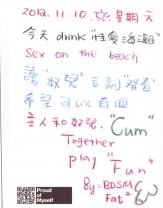 2012. 11. 10. ☆. 星期六
今天 drink "性愛海灘"
Sex on the beach
讓"奴兒"立刻"發春"
希望可以有個
主人和奴兒. "Cum"
Together
play "Fun"
By: BDSM
Fat²
Proud
of
Myself